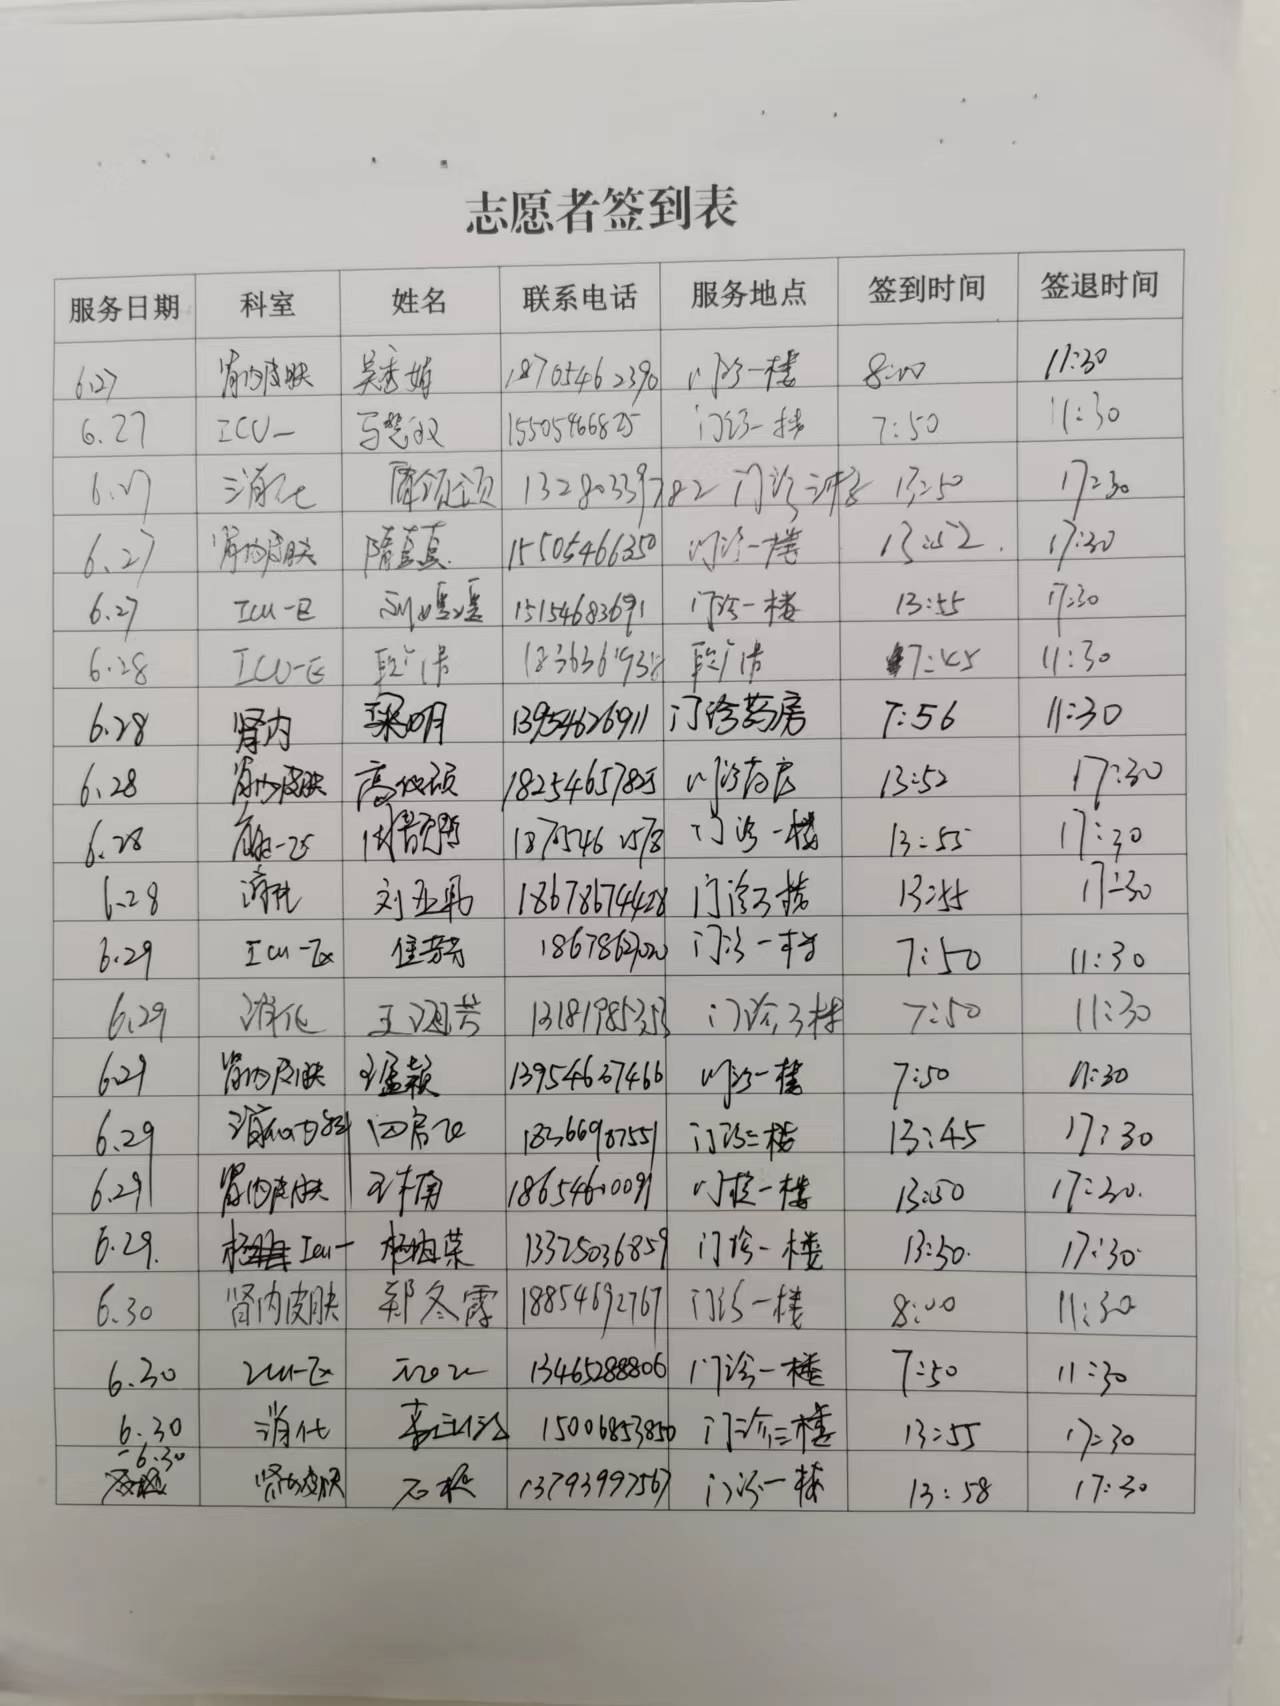 志愿者签到表
服务日期 科室 姓名 联系电话 服务地点 签到时间 签退时间
6.27 肾内皮肤 吴秀娟 18705462390 门诊一楼 8:00 11:30
6.27 ICU一 15505466825 门诊一楼 7:50 11:30
6.27 消化 颂 13280339782 门诊三楼 13:50 17:30
6.27 肾内皮肤 隋真真 15505466350 门诊一楼 13:52 17:30
6.27 ICU一区 15154683691 门诊一楼 13:55 17:30
6.28 ICU一区 7:45 11:30
6.28 肾内 梁明 13954626911 门诊药房 7:56 11:30
6.28 肾内皮肤 高 18254657825 门诊药房 13:52 17:30
6.28 一区 门诊一楼 13:55 17:30
6.28 消化 刘 18678674428 门诊三楼 13:55 17:30
6.29 ICU一区 门诊一楼 7:50 11:30
6.29 消化 王 13181985353 门诊三楼 7:50 11:30
6.29 肾内皮肤 王孟颖 13954637466 门诊一楼 7:50 11:30
6.29 消化内科 18366987551 门诊三楼 13:45 17:30
6.29 肾内皮肤 王 18654600091 门诊一楼 13:50 17:30.
6.29. ICU一 荣 13325036859 门诊一楼 13:50. 17:30.
6.30 肾内皮肤 郭冬霞 18854692767 门诊一楼 8:00 11:30
6.30 ICU一区 13465288806 门诊一楼 7:50 11:30
6.30 消化 李 15006853850 门诊三楼 13:55 17:30
6.30 肾内皮肤 石 13793997567 门诊一楼 13:58 17:30